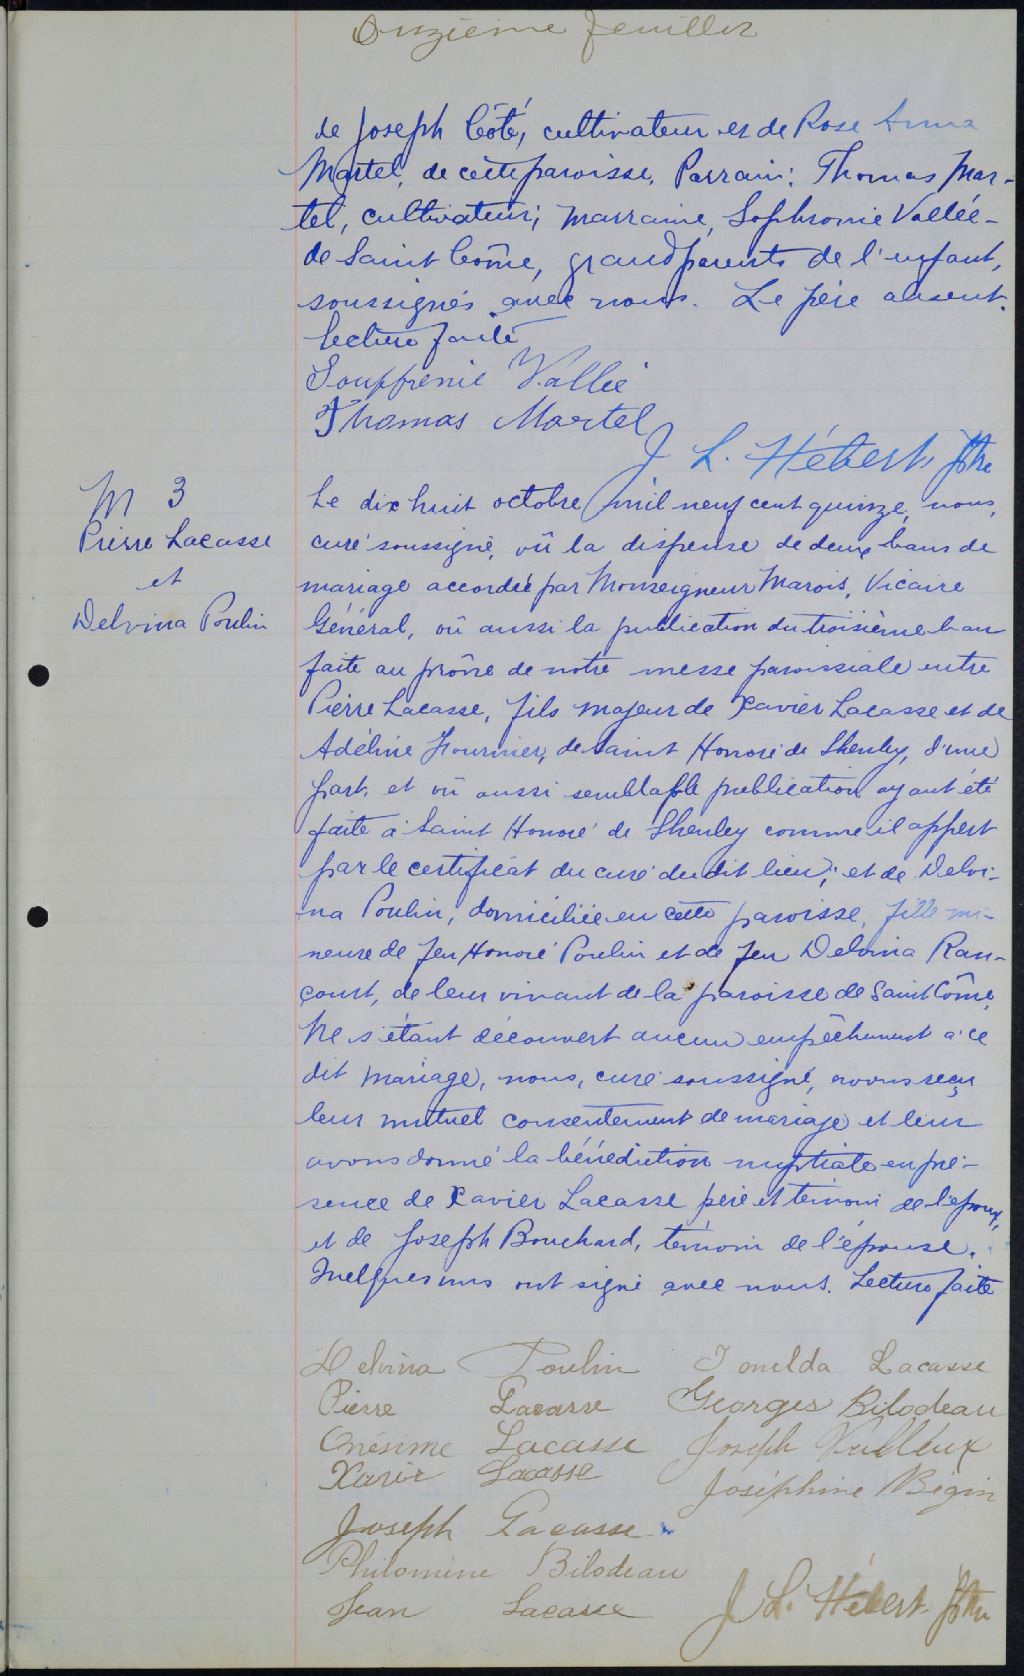 Onzième feuillet
de Joseph Côté, cultivateur et de Rose Anna
Martel, de cette paroisse. Parrain: Thomas Mar-
tel, cultivateur; marraine, Sophronie Vallée-
de Saint Côme, grandparents de l'enfant,
soussignés avec nous. Le père absent.
Lecture faite
Souffrenie Vallié
Thomas Martel
J. L. Hébert, Ptre
M 3
Pierre Lacasse
et
Delvina Poulin
Le dix huit octobre mil neuf cent quinze, nous,
curé soussigné, vû la dispense de deux bans de
mariage accordée par Monseigneur Marois, Vicaire
Général, vû aussi la publication du troisième ban
faite au prône de notre messe paroissiale entre
Pierre Lacasse, fils majeur de Xavier Lacasse et de
Adéline Fournier, de Saint Honoré de Shenley, d'une
part, et vû aussi semblable publication ayant été
faite à Saint Honoré de Shenley comme il appert
par le certificat du curé du dit lieu; et de Delvi-
na Poulin, domiciliée en cette paroisse, fille mi-
neure de feu Honoré Poulin et de feu Delvina Ran-
court, de leur vivant de la paroisse de Saint Côme,
Ne s'étant découvert aucun empêchement à ce
dit mariage, nous, curé soussigné, avons reçu
leur mutuel consentement de mariage et leur
avons donné la bénédiction nuptiale en pré-
sence de Xavier Lacasse père et témoin de l'époux,
et de Joseph Bouchard, témoin de l'épouse.
Quelques uns ont signé avec nous. Lecture faite
Delvina Poulin Imelda Lacasse
Pierre Lacasse Georges Bilodeau
Onésime Lacasse Joseph Veilleux
Xavier Lacasse Joséphine Bégin
Joseph Lacasse
Philomène Bilodeau
Jean Lacasse J. L. Hébert Ptre